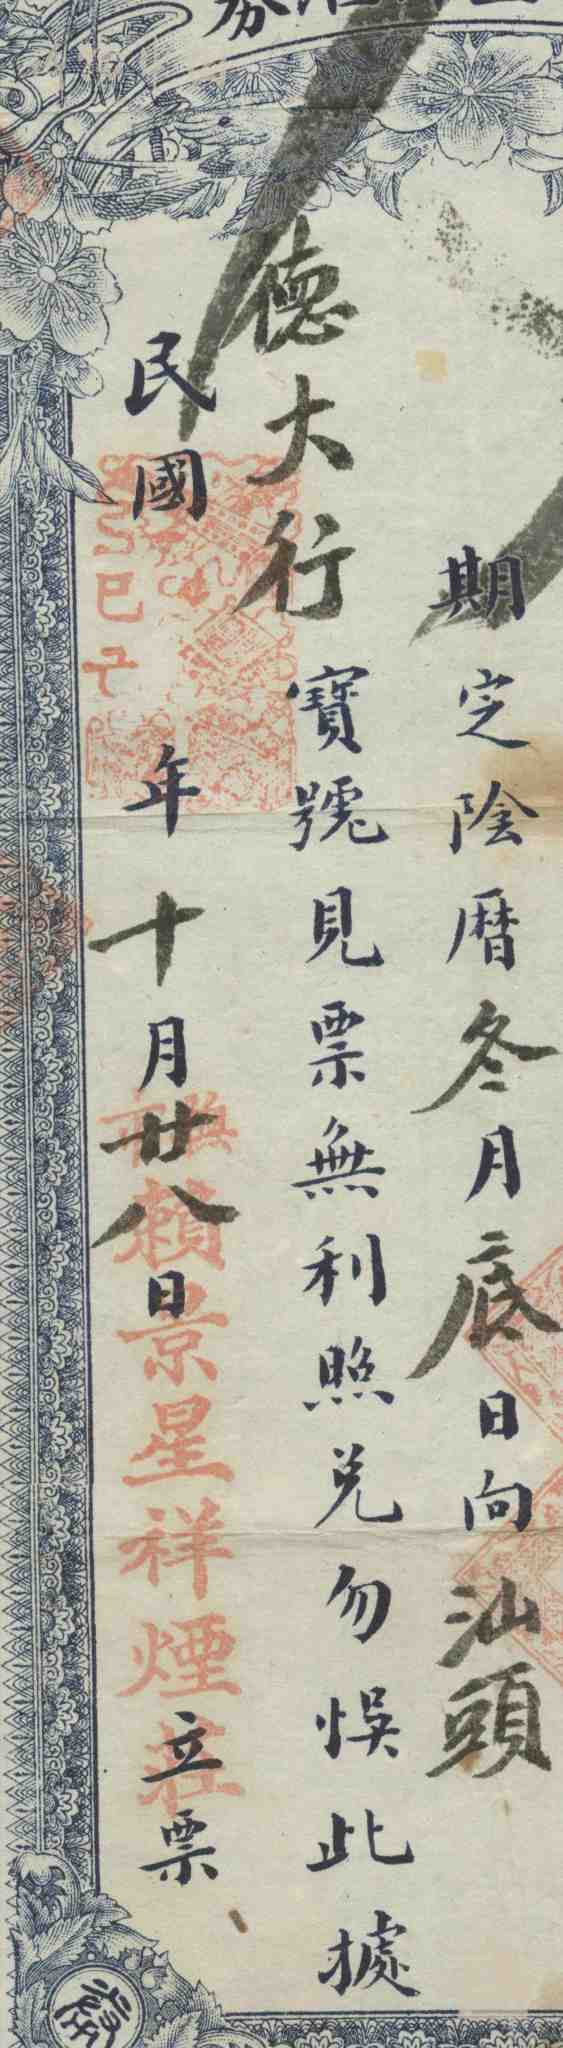 期定陰曆冬月底日向汕頭
德大行寶號見票無利照兌勿悞此據
民國 年十月廿八日 立票
賴景星祥煙莊